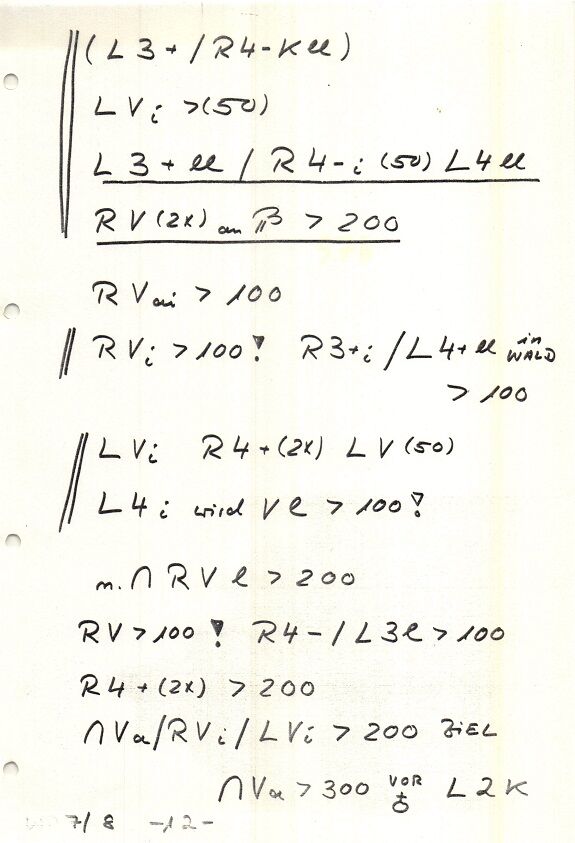 (L3+/R4-Kll)
LVi >(50)
L3+ll / R4-i (50) L4ll
RV(2x) an > 200
RVai > 100
RVi > 100! R3+i/L4+ll in WALD
> 100
LVi R4+(2x) LV(50)
L4i wird Vl > 100!
n. ∩ RVl > 200
RV > 100! R4-/L3l > 100
R4+(2x) > 200
∩Va/RVi/LVi > 200 ZIEL
∩Va > 300 VOR L2K
7/8 -12-